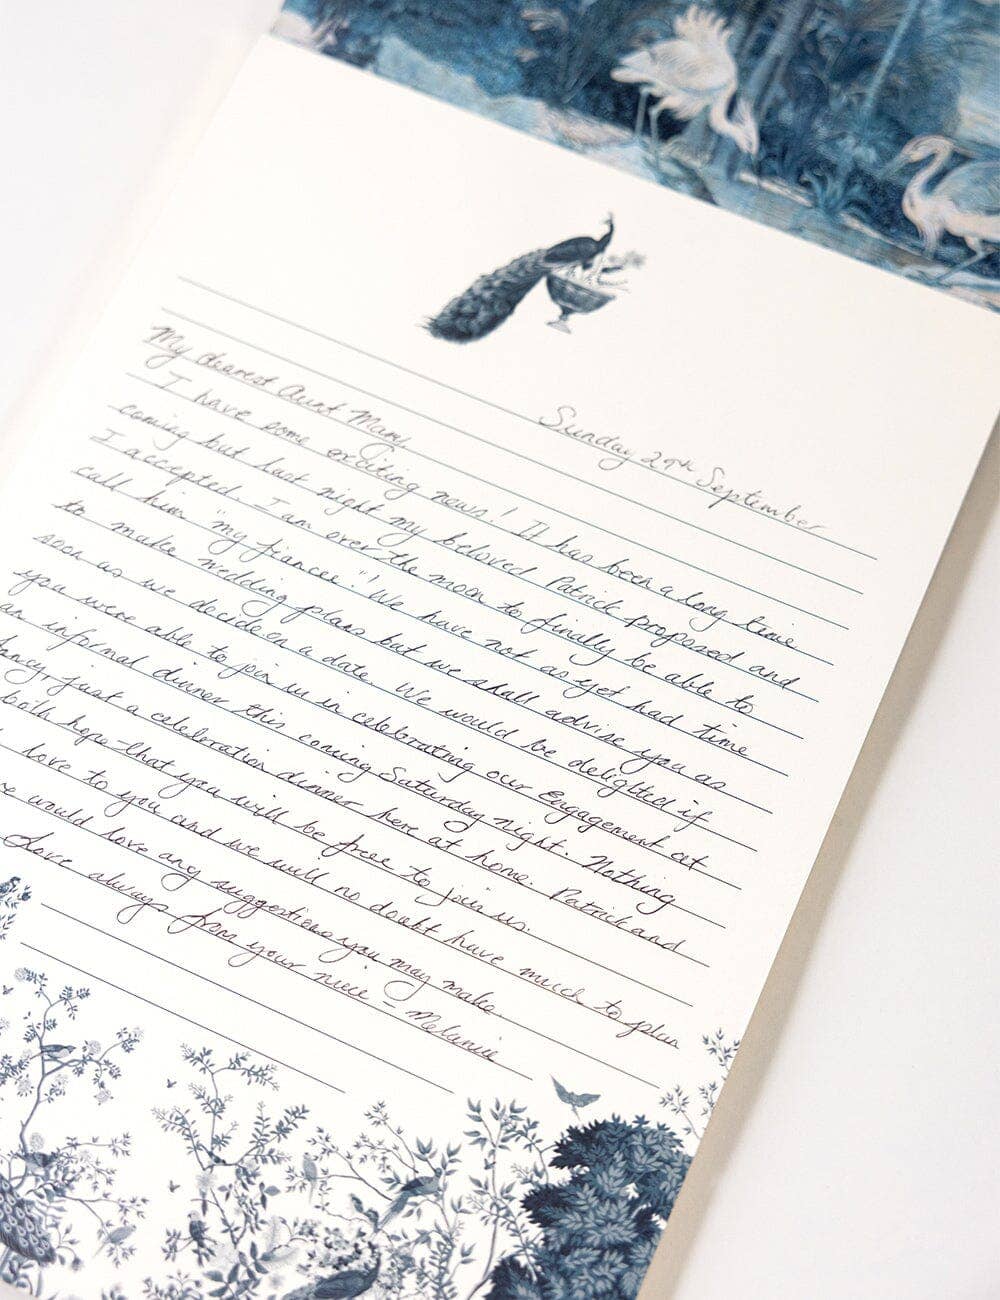 Sunday 29th September
My dearest Aunt Mary,
I have some exciting news! It has been a long time
coming but last night my beloved Patrick proposed and
I accepted. I am over the moon to finally be able to
call him "my fiancee"! We have not as yet had time
to make wedding plans but we shall advise you as
soon as we decide on a date. We would be delighted if
you were able to join us in celebrating our engagement at
an informal dinner this coming Saturday night. Nothing
fancy, just a celebration dinner here at home. Patrick and
both hope that you will be free to join us.
love to you and we will no doubt have much to plan
would love any suggestions you may make
Love always from your niece - Melanie